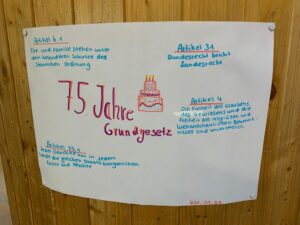 Artikel 6.1
Ehe und Familie stehen unter
dem besonderen Schutze der
staatlichen Ordnung
Artikel 31
Bundesrecht bricht
Landesrecht
75 Jahre
Grundgesetz
Artikel 4
Die Freiheit des Glaubens,
des Gewissens und die
Freiheit des religiösen und
Weltanschaulichen Bekennt-
nisses sind unverletzlich.
Artikel 33.1
Jeder Deutsche hat in jedem
Lande die gleichen Staatsbürgerlichen
Rechte und Pflichten